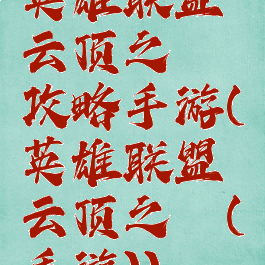 英雄联盟
云顶之
攻略手游(
英雄联盟
云顶之 (
手游))